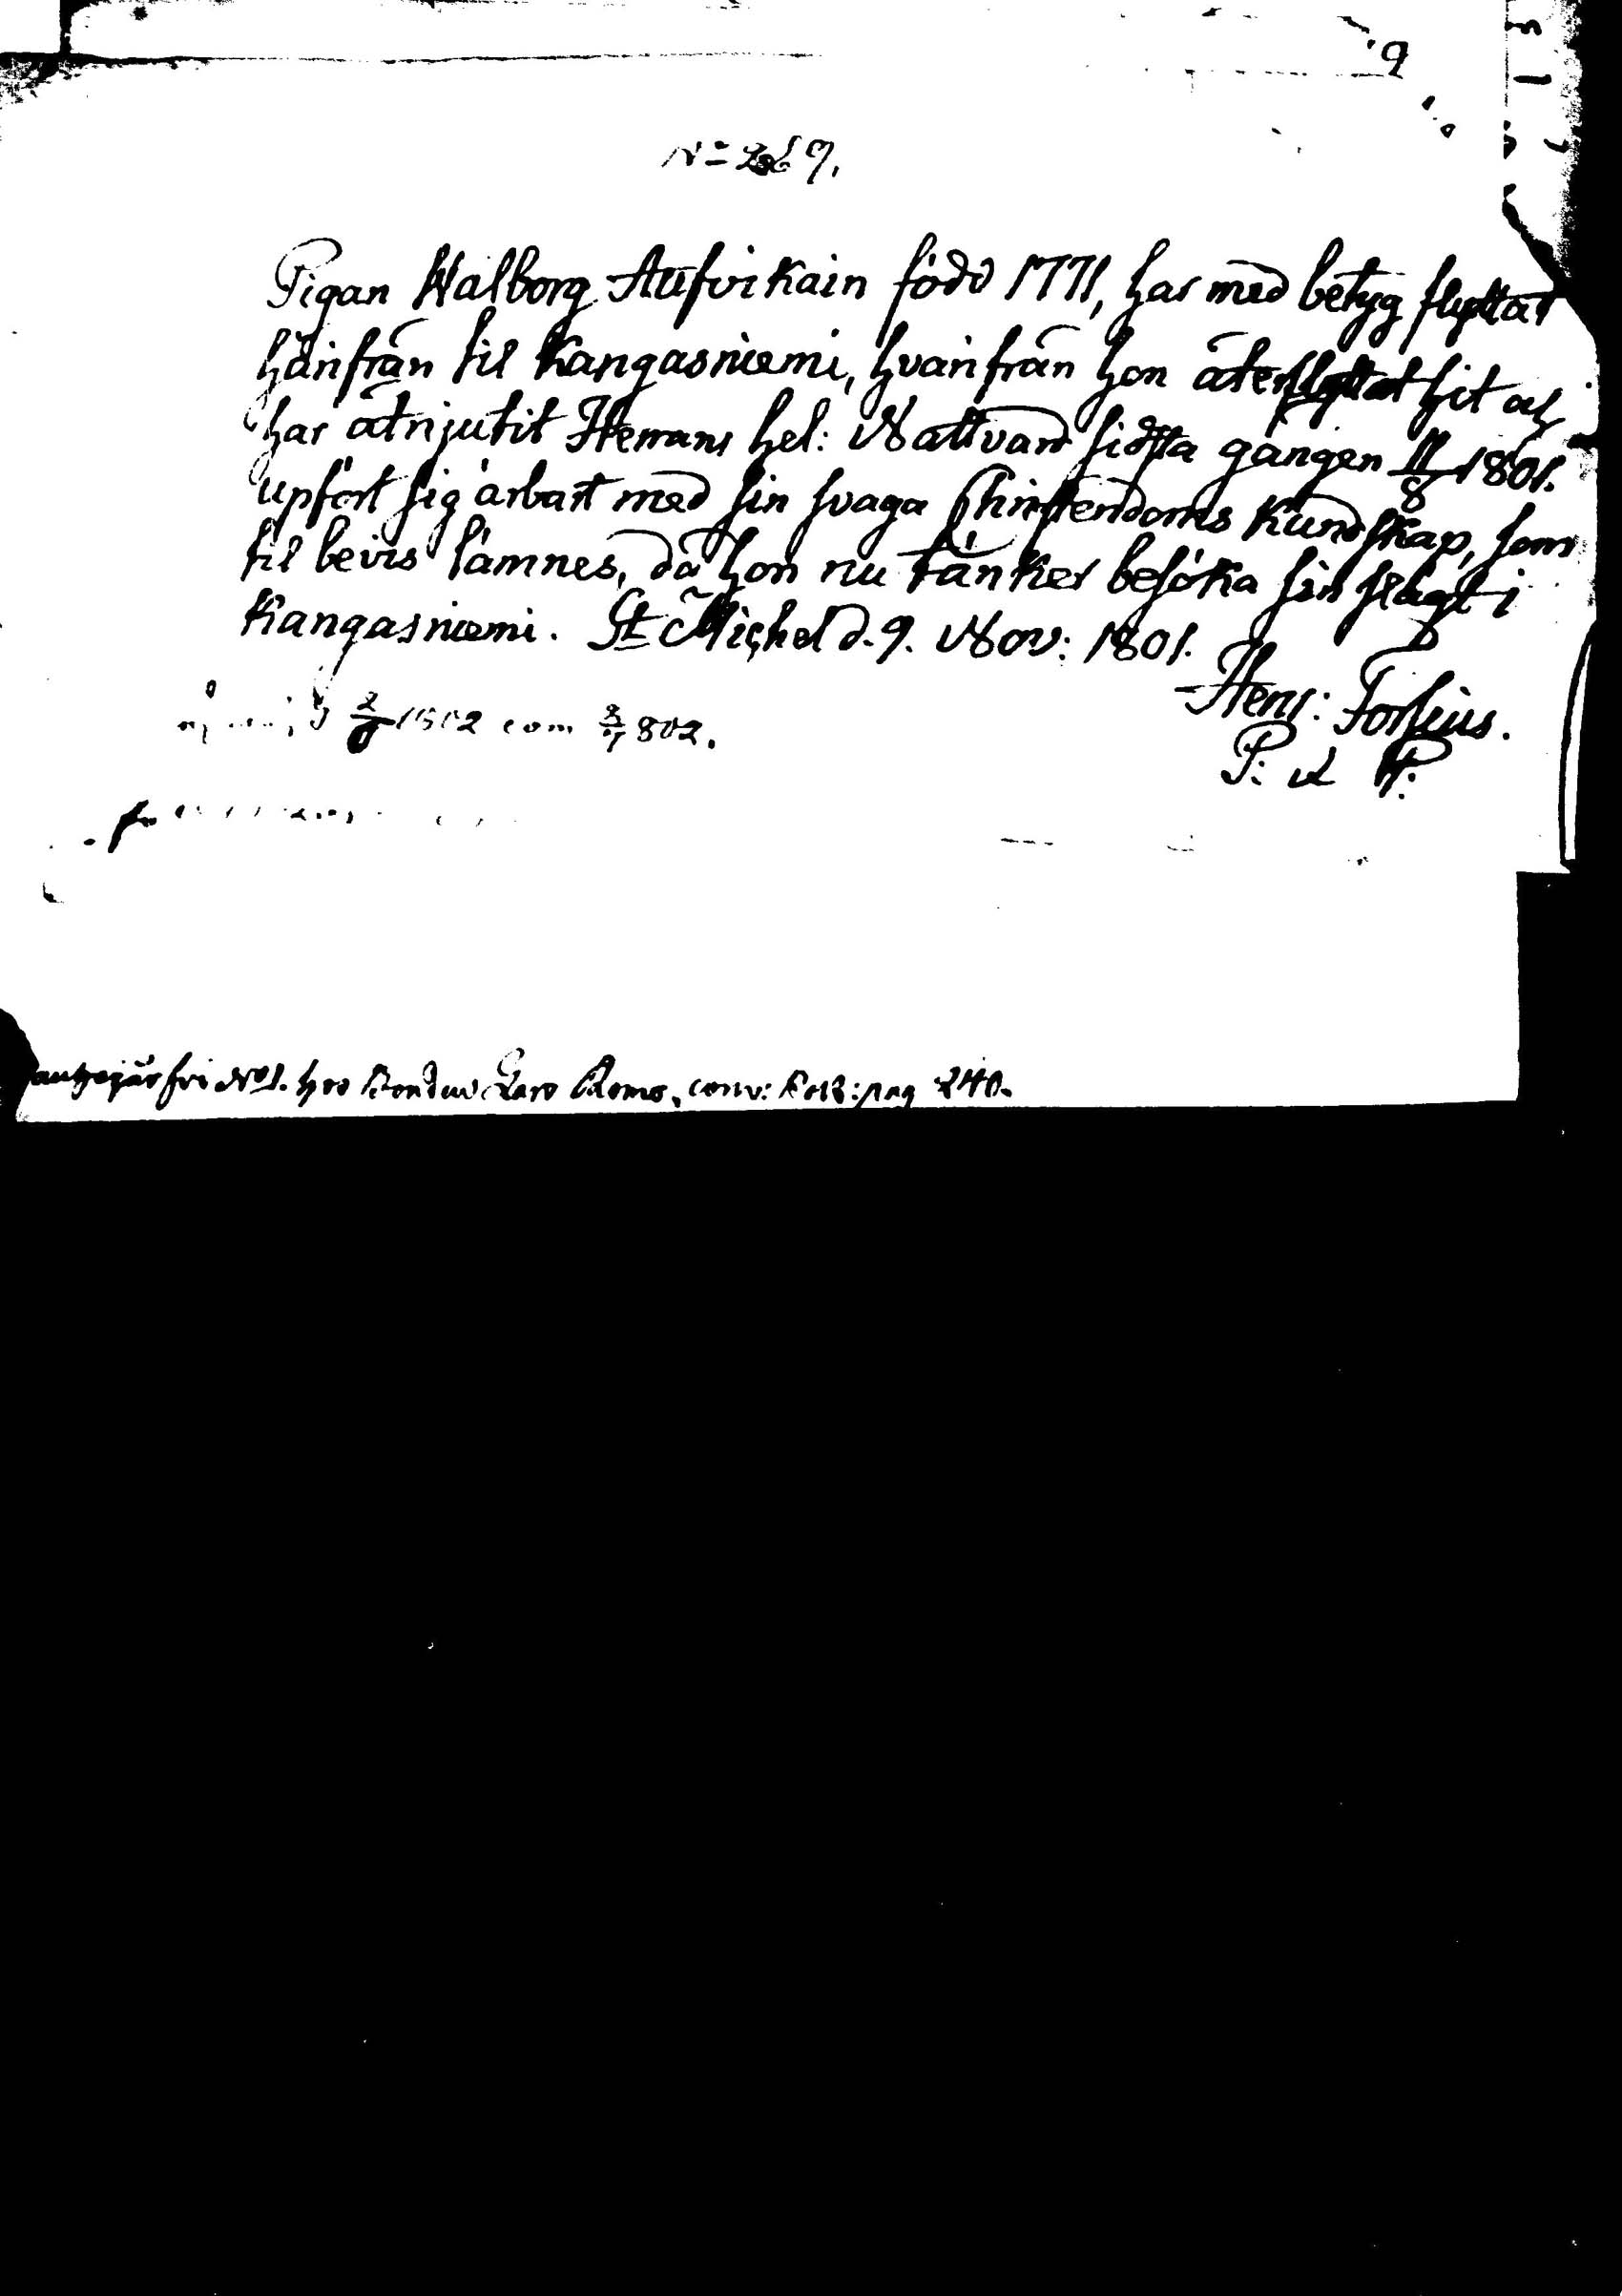 9
N= 2069.
Pigan Walborg Aufvikain född 1771, har med betyg flyttat
härifrån til Kangasniemi, hvarifrån hon återflyttat hit och
har åtnjutit Herrans hel: Nattvard sidsta gången 11/8 1801.
upfört sig ärbart med sin svaga Christendoms Kundskap, som
til bevis lämnes, då hon nu tänker besöka sin slägt i
Kangasniemi. St Michel d. 9. Nov: 1801.
Henr: Forsius.
P: &
1802 com 802.
No 1. hos Bonden Lars conv: pag 240.